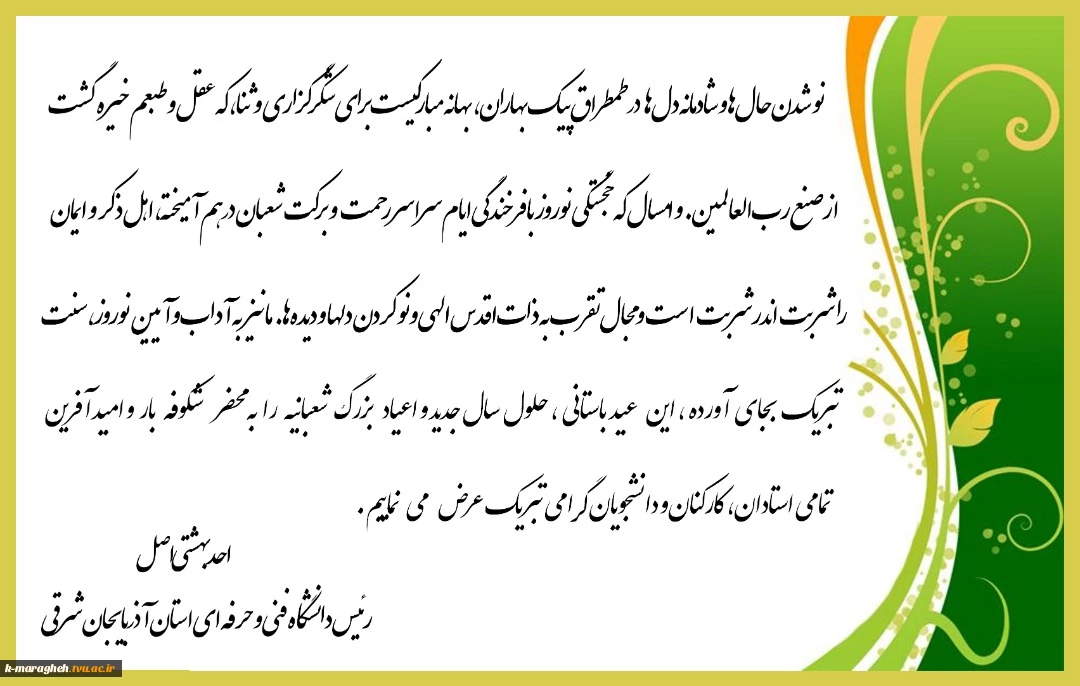 نو شدن حال ها و شادمانه دل ها در طمطراق پیک بهاران، بهانه مبارکیست برای شکرگزاری و ثنا، که عقل و طبعم خیره گشت
از صنع رب العالمین. و امسال که خجستگی نوروز با فرخندگی ایام سراسر رحمت و برکت شعبان در هم آمیخته، اهل ذکر و ایمان
را شربت اندر شربت است و مجال تقرب به ذات اقدس الهی و نو کردن دلها و دیده ها. ما نیز به آداب و آیین نوروز، سنت
تبریک بجای آورده ، این عید باستانی ، حلول سال جدید و اعیاد بزرگ شعبانیه را به محضر شکوفه بار و امید آفرین
تمامی استادان، کارکنان و دانشجویان گرامی تبریک عرض می نماییم .
احد بهشتی اصل
رئیس دانشگاه فنی و حرفه ای استان آذربایجان شرقی
k-maragheh.tvu.ac.ir